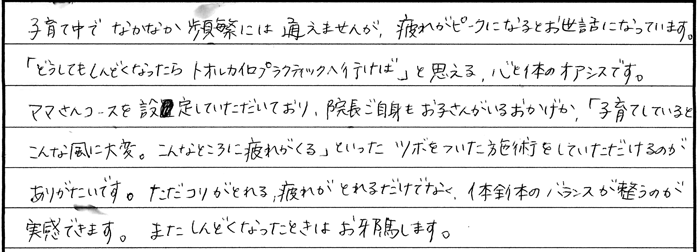 子育て中で なかなか 頻繁には 通えませんが、疲れがピークになるとお世話になっています。
「どうしてもしんどくなったら トオルカイロプラクティックへ行けば」と思える、心と体のオアシスです。
ママさんコースを設定していただいており、院長ご自身もお子さんがいるおかげか、「子育てしていると
こんな風に大変。こんなところに疲れがくる」といった ツボをついた施術をしていただけるのが
ありがたいです。ただコリがとれる、疲れがとれるだけでなく、体全体のバランスが整うのが
実感できます。またしんどくなったときは お邪魔します。